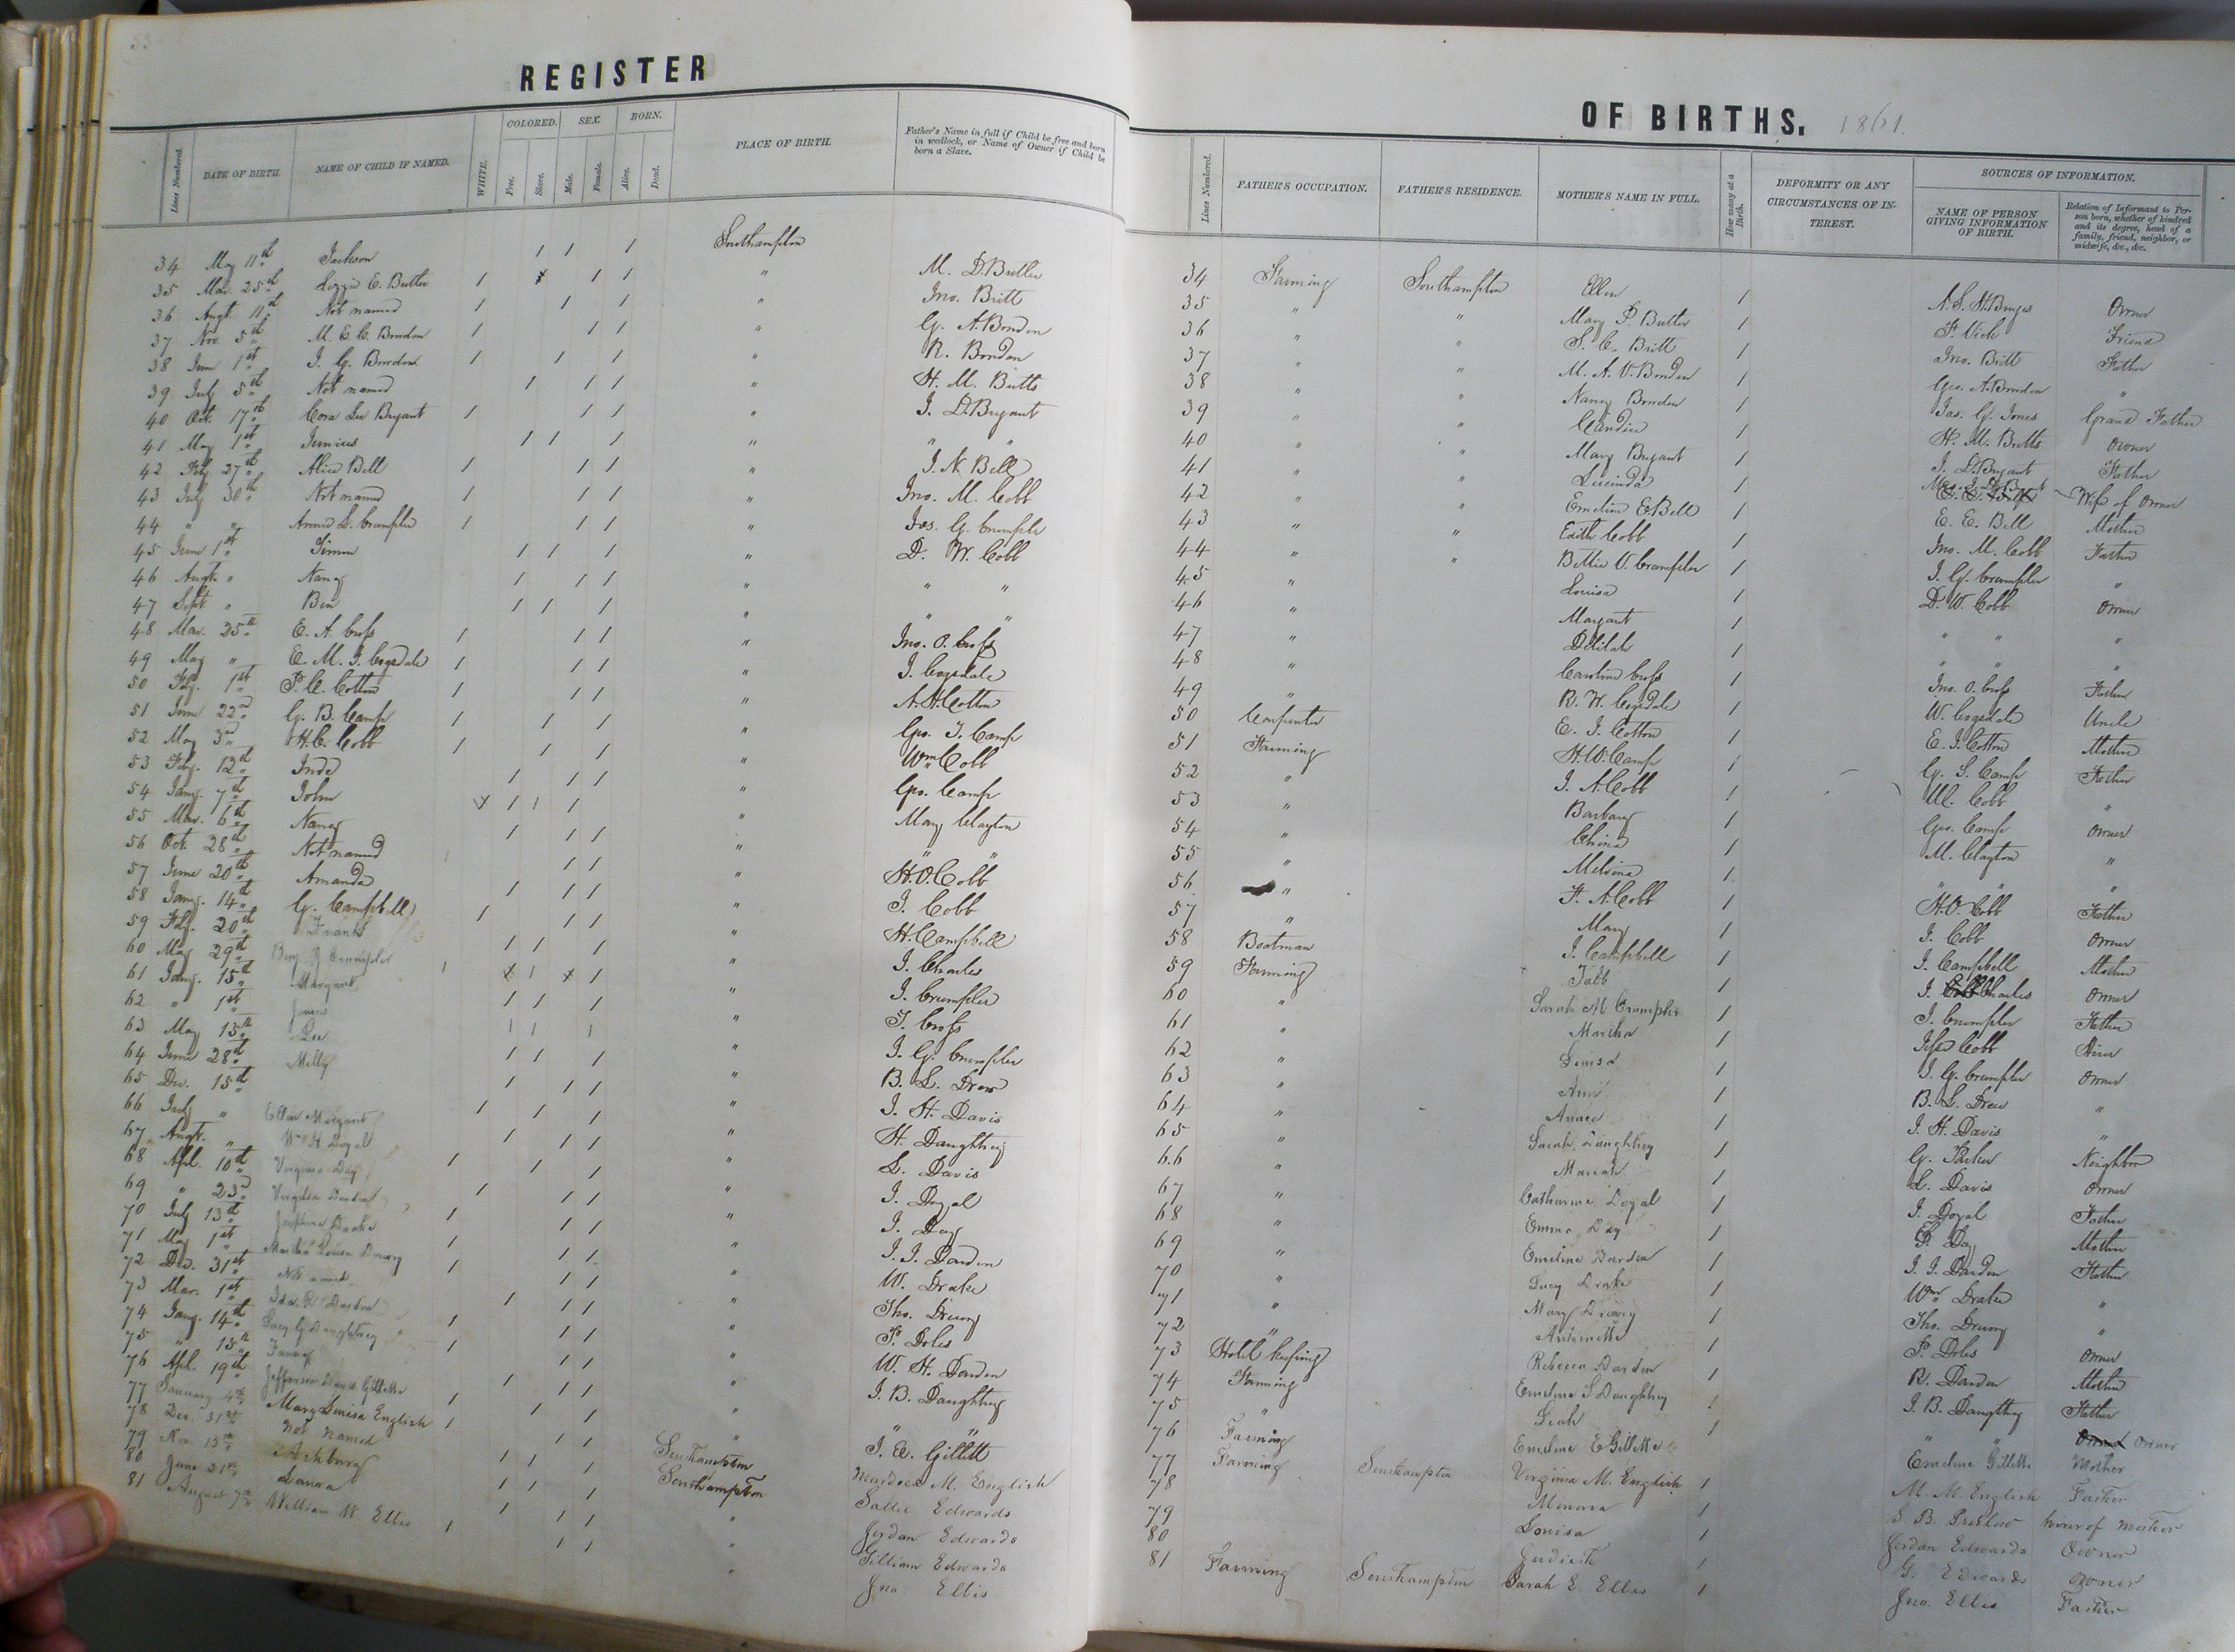 53
REGISTER
Lines Numbered. DATE OF BIRTH. NAME OF CHILD IF NAMED. WHITE. COLORED. Free. Slave. SEX. Male. Female. BORN. Alive. Dead. PLACE OF BIRTH. Father's Name in full if Child be free and born in wedlock, or Name of Owner if Child be born a Slave.
34 May 11th Jackson / / / Southampton M. D. Butler
35 Mar. 25th Lizzie E. Butler / / / " Jno. Britt
36 Augt. 11th Not named / / / " G. A. Bowden
37 Nov. 5th M. E. C. Bowden / / / " R. Bowden
38 June 1st J. G. Bowden / / / " H. M. Butts
39 July 5th Not named / / / " J. D. Bryant
40 Oct. 17th Cora Lee Bryant / / / " " "
41 May 1st Junius / / / " J. N. Bell
42 Feby. 27th Alice Bell / / / " Jno. M. Cobb
43 July 30th Not named / / / " Jas. G. Crumpler
44 " " Annie L. Crumpler / / / " D. W. Cobb
45 June 1st Simon / / / " " "
46 Augt. " Nancy / / / " " "
47 Sept. " Ben / / / " Jno. O. Cross
48 Mar. 25th E. A. Cross / / / " J. Cogsdale
49 May " E. M. J. Cogsdale / / / " A. H. Cotton
50 Feby. 1st P. C. Cotton / / / " Geo. T. Camp
51 June 22nd G. B. Camp / / / " Wm Cobb
52 May 3rd H. C. Cobb / / / " Geo. Camp
53 Feby. 12th Inde / / / " Mary Clayton
54 Jany. 7th John / / / " " "
55 Mar. 6th Nancy / / / " H. O. Cobb
56 Oct. 28th Not named / / / " J. Cobb
57 June 20th Amanda / / / " H. Campbell
58 Jany. 14th G. Campbell / / / " J. Charles
59 Feby. 20th Frank / / / " J. Crumpler
60 May 29th Crumpler / / / " T. Cross
61 Jany. 15th Margaret / / / " J. G. Crumpler
62 " 1st / / / " B. L. Drew
63 May 15th Lee / / / " J. H. Davis
64 June 28th Milly / / / " H. Daughtrey
65 Dec. 15th / / / " L. Davis
66 July " Margaret / / / " J. Doyal
67 Augt. " Wm H. Doyal / / / " J. Day
68 Apl. 10th Virginia Day / / / " J. J. Darden
69 " 23rd Virgilia Darden / / / " W. Drake
70 July 13th Josephine Drake / / / " Tho. Drewry
71 May 1st Martha Louisa Drewry / / / " P. Doles
72 Dec. 31st Not named / / / " W. H. Darden
73 Mar. 1st Ida R. Darden / / / " J. B. Daughtrey
74 Jany. 14th Lucy G. Daughtrey / / / " " "
75 " 15th Fanny / / / " J. E. Gillett
76 Apl. 19th Jefferson Davis Gillette / / / Southampton Murdock M. English
77 January 4th Mary Louisa English / / / Southampton Sallie Edwards
78 Dec. 31st Not Named / / / " Jordan Edwards
79 Nov. 15th Ashbury / / / " Gilliam Edwards
80 June 21st Laura / / / " Jno. Ellis
81 August 7th William W Ellis / / /
OF BIRTHS. 1861.
Lines Numbered. FATHER'S OCCUPATION. FATHER'S RESIDENCE. MOTHER'S NAME IN FULL. How many at a Birth. DEFORMITY OR ANY CIRCUMSTANCES OF INTEREST. SOURCES OF INFORMATION. NAME OF PERSON GIVING INFORMATION OF BIRTH. Relation of Informant to Person born, whether of kindred and its degree, head of a family, friend, neighbor, or midwife, &c., &c.
34 Farming Southampton Ellen / Owner
35 " " Mary P. Butler / F. Vick Friend
36 " " S. C. Britt / Jno. Britt Father
37 " " M. A. V. Bowden / Geo. A. Bowden "
38 " " Nancy Bowden / Jas. G. Jones Grand Father
39 " " / H. M. Butts Owner
40 " " Mary Bryant / J. D. Bryant Father
41 " " Lucinda / Mrs. J. D. Bryant Wife of Owner
42 " " Emeline E Bell / E. E. Bell Mother
43 " " Edith Cobb / Jno. M. Cobb Father
44 " " Bettie V. Crumpler / J. G. Crumpler "
45 " Louisa / D. W. Cobb Owner
46 " Margaret / " " "
47 " Delilah / " " "
48 " Caroline Cross / Jno. O. Cross Father
49 " R. W. Cogsdale / W. Cogsdale Uncle
50 Carpenter E. J. Cotton / E. J. Cotton Mother
51 Farming H. W. Camp / G. T. Camp Father
52 " J. A. Cobb / W. Cobb "
53 " Barbary / Geo. Camp Owner
54 " China / M. Clayton "
55 " Melvina / " " "
56 " F. A. Cobb / H. O. Cobb Father
57 " Mary / J. Cobb Owner
58 Boatman J. Campbell / J. Campbell Mother
59 Farming Tabb / J. Charles Owner
60 " Sarah M. Crumpler / J. Crumpler Father
61 " Martha / Cobb Hirer
62 " Louisa / J. G. Crumpler Owner
63 " Ann / B. L. Drew "
64 " / J. H. Davis "
65 " Sarah Daughtrey / G. Parker Neighbor
66 " Mariah / L. Davis Owner
67 " Catharine Doyal / J. Doyal Father
68 " Emma Day / Day Mother
69 " Emeline Darden / J. J. Darden Father
70 " Lucy Drake / Wm Drake "
71 " Mary Drewry / Tho. Drewry "
72 " Antoinette / P. Doles Owner
73 Hotel keeping Rebecca Darden / R. Darden Mother
74 Farming Emeline S Daughtrey / J. B. Daughtrey Father
75 " Leah / " " Owner
76 Farming Emeline E Gillette Emeline Gillette Mother
77 Farming Southampton Virginia M. English / M. M. English Father
78 Minerva / S. B. Hirer of Mother
79 Louisa / Jordan Edwards Owner
80 Judieth / G. Edwards Owner
81 Farming Southampton Sarah E. Ellis / Jno. Ellis Father